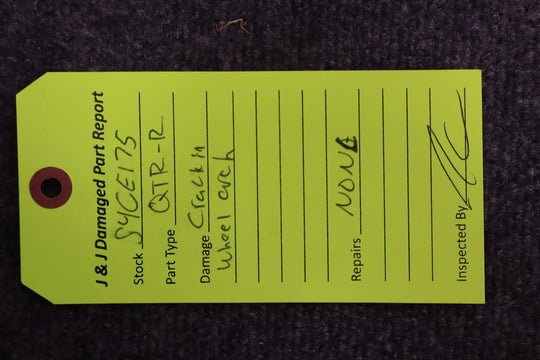 J & J Damaged Part Report
Stock S4CE175
Part Type QTR-R
Damage Crack in
wheel arch
Repairs NONE
Inspected By